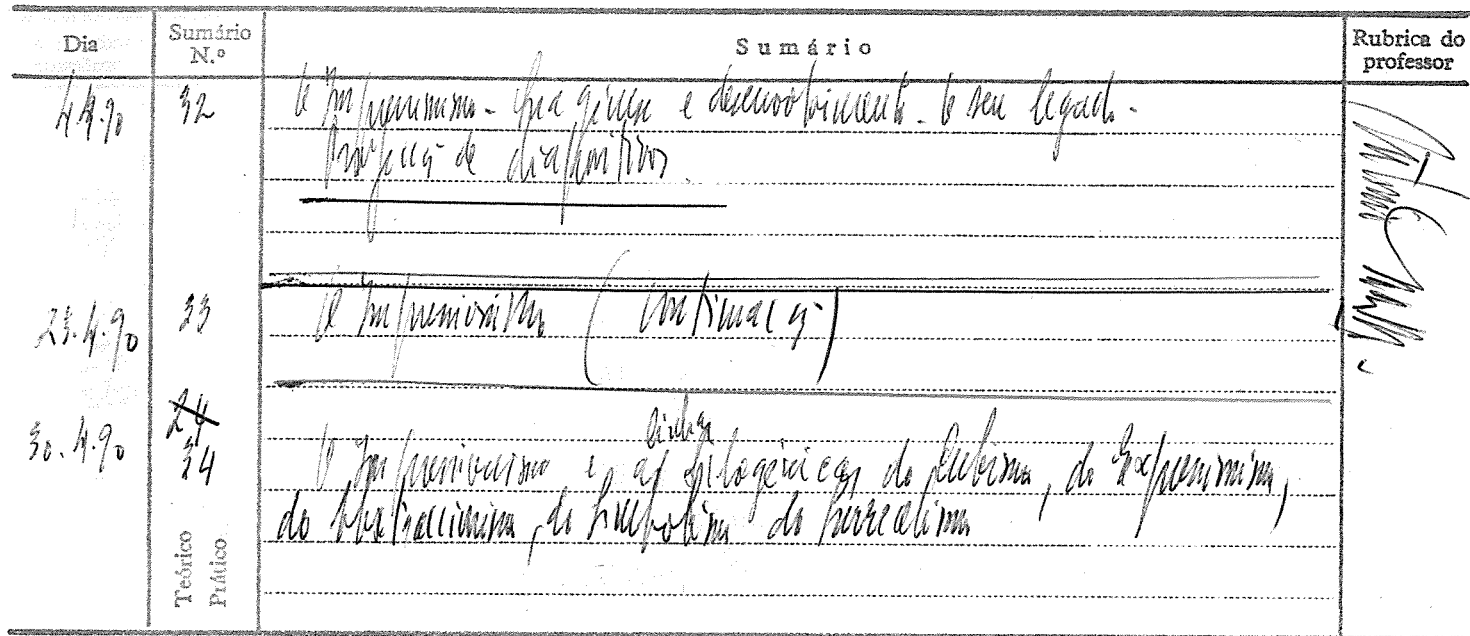 Dia Sumário N.º Sumário Rubrica do professor
4.4.90 32 O Impressionismo - Sua génese e desenvolvimento. O seu legado.
Projecção de diapositivos.
23.4.90 33 O Impressionismo (Continuação)
24
linhas
30.4.90 34 O Impressionismo e as filogénicas do Cubismo, do Expressionismo,
do Abstraccionismo, do Simbolismo do Surrealismo
Teórico
Prático